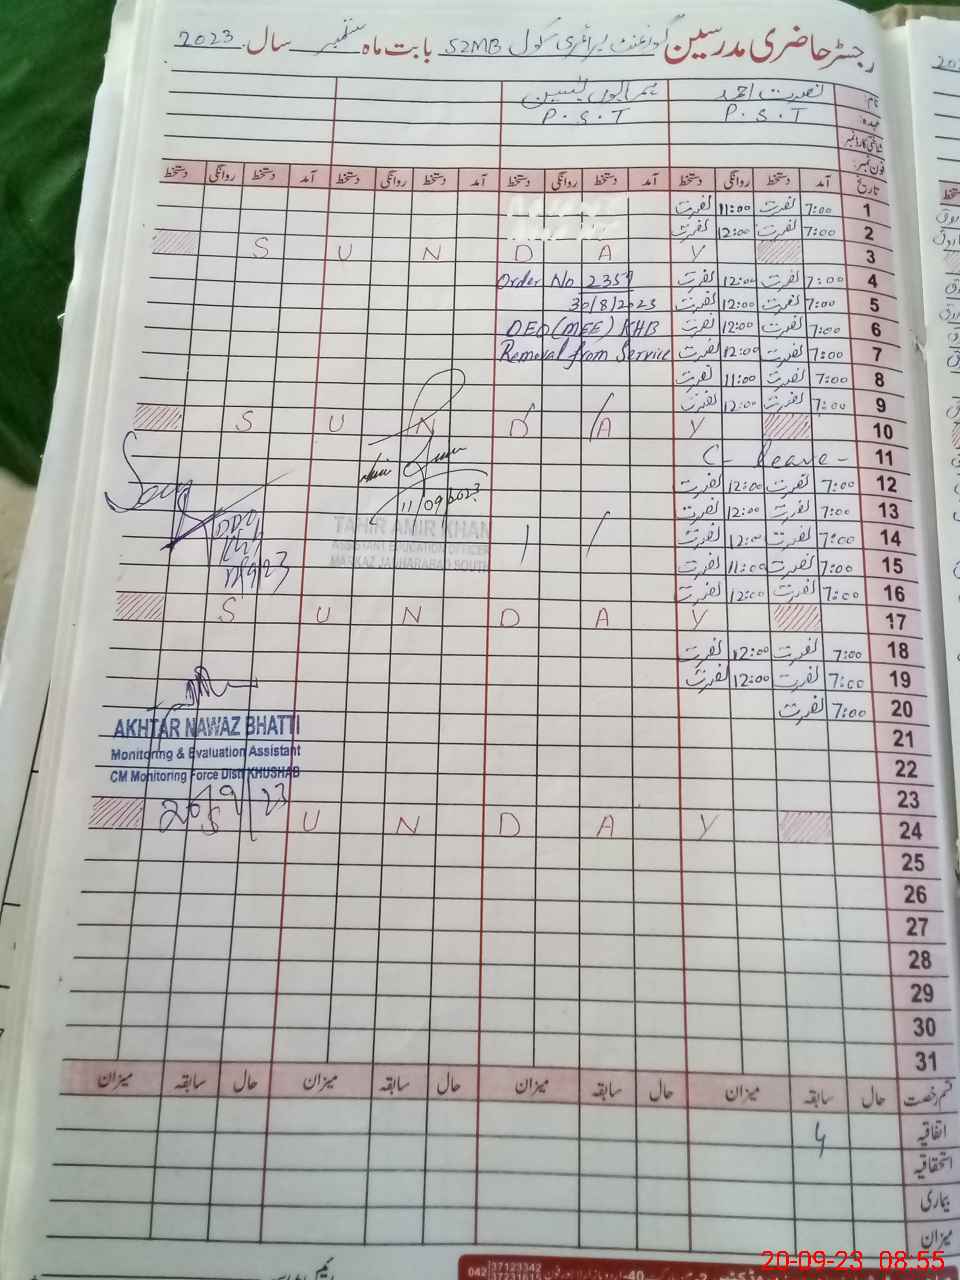 رجسٹر حاضری مدرسین گورنمنٹ پرائمری سکول 52MB بابت ماہ ستمبر سال 2023
نام: نصرت احمد ہمایوں یٰسین
عہدہ: P.S.T P.S.T
شناختی کارڈ نمبر
فون نمبر:
تاریخ آمد دستخط روانگی دستخط آمد دستخط روانگی دستخط آمد دستخط روانگی دستخط آمد دستخط روانگی دستخط
1 7:00 نصرت 11:00 نصرت
2 7:00 نصرت 12:00 نصرت
3 S U N D A Y
4 7:00 نصرت 12:00 نصرت Order No 2359
5 7:00 نصرت 12:00 نصرت 30/8/2023
6 7:00 نصرت 12:00 نصرت DEO (MEE) KHB
7 7:00 نصرت 12:00 نصرت Removal from Service
8 7:00 نصرت 11:00 نصرت
9 7:00 نصرت 12:00 نصرت
10 S U N D A Y
11 C- Leave -
12 7:00 نصرت 12:00 نصرت
11/09/2023
13 7:00 نصرت 12:00 نصرت
TAHIR AMIR KHAN
14 7:00 نصرت 12:00 نصرت
ASSISTANT EDUCATION OFFICER
MARKAZ JAUHARABAD SOUTH
15 7:00 نصرت 11:00 نصرت
16 7:00 نصرت 12:00 نصرت
17 S U N D A Y
18 7:00 نصرت 12:00 نصرت
19 7:00 نصرت 12:00 نصرت
20 7:00 نصرت
AKHTAR NAWAZ BHATTI
21
Monitoring & Evaluation Assistant
22
CM Monitoring Force Distt KHUSHAB
23
20/9/23
24 S U N D A Y
25
26
27
28
29
30
31
قسم رخصت حال سابقہ میزان حال سابقہ میزان حال سابقہ میزان حال سابقہ میزان
اتفاقیہ
استحقاقیہ
بیماری
میزان
042 37123342
20-09-23 08:55